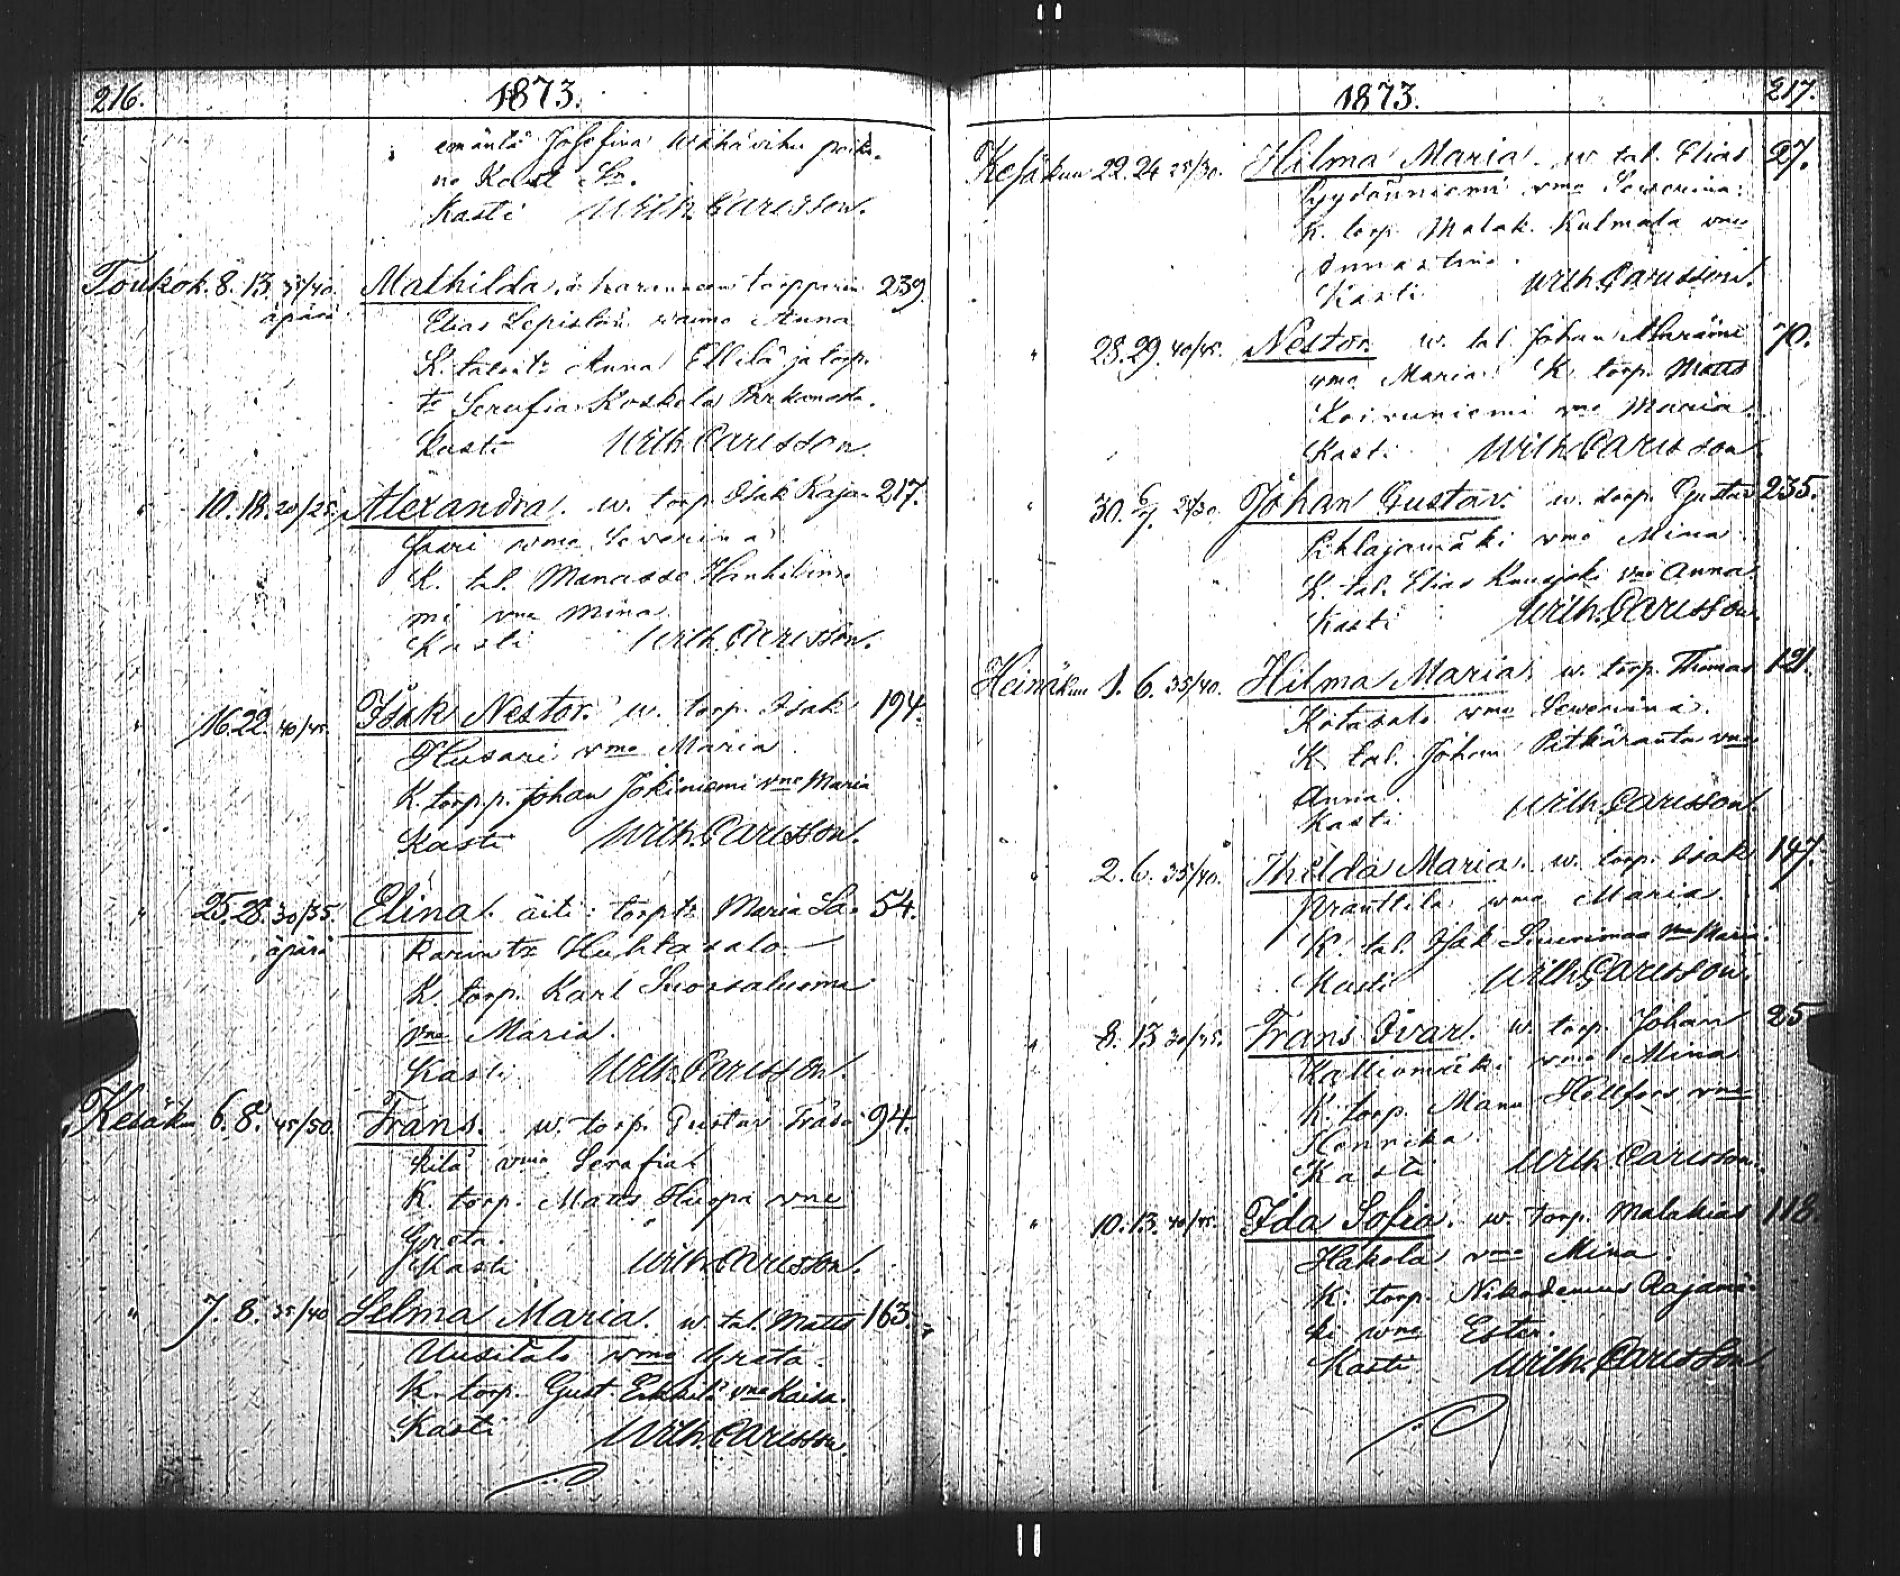 216. 1873.
emäntä Josefina Wähävihu poika-
no Karl Sn.
Kasti Wilh. Carlsson.
Toukok. 8. 13. 35/40. Mathilda, torpparin 239.
äpärä Elias waimo Anna
K. Anna Ettilä ja torp.
Serafia Koskela Parkanosta.
Kasti Wilh. Carlsson.
" 10. 18. 20/25. Alexandra. w. torp. Isak Raja- 217.
saari wmo Sewerina
K. tal. Manasse Hanhinie-
mi vmo Mina
Kasti Wilh. Carlsson.
" 16. 22. 40/45. Isak Nestor. w. torp. Isak 194.
Husari vmo Maria
K. torpp. Johan Jokiniemi vmo Maria
Kasti Wilh. Carlsson.
" 25. 28. 30/35. Elina. äiti: torp.tr Maria La- 54.
äpärä Huhtasalo
K. torp. Karl
vmo Maria.
Kasti Wilh. Carlsson.
Kesäku 6. 8. 45/50. Frans. w. torp. Gustav 94.
vmo Serafia
K. torp. Matts Huopa vmo
Greta.
Kasti Wilh. Carlsson.
" 7. 8. 35/40 Selma Maria. w. tal. Matts 163.
Uusitalo wmo Greta.
K. torp. Gust. vmo Kaisa.
Kasti Wilh. Carlsson.
1873. 217.
Kesäkuu 22. 24 25/30. Hilma Maria. w. tal. Elias 27.
Pyydönniemi vmo Sewerina.
K. torp. Malak. Kulmala vmo
Annastina.
Kasti Wilh. Carlsson.
" 28. 29. 40/45. Nestor. w. tal. Johan 70.
vmo Maria K. torp. Matts
Koivuniemi vmo Maria.
Kasti Wilh. Carlsson.
" 30. 6/7. 25/30. Johan Gustav. w. torp. Gustav 235.
Pihlajamäki vmo Mina.
K. tal. Elias Kuusjoki vmo Anna.
Kasti Wilh. Carlsson.
Heinäkuu 1. 6. 35/40. Hilma Maria. w. torp. Thomas 121.
Kotasalo vmo Sewerina.
K. tal. Johan Pitkäranta vmo
Anna.
Kasti Wilh. Carlsson.
" 2. 6. 35/40. Thilda Maria. w. torp. Isak 147.
Pranttila vmo Maria.
K. tal. Isak vmo Maria.
Kasti Wilh. Carlsson.
" 8. 13 30/35. Frans Ivar. w. torp. Johan 25
Kalliomäki vmo Mina
K. torp. Manu Hellfors vmo
Henrika.
Kasti Wilh. Carlsson.
" 10. 13. 40/45. Ida Sofia. w. torp. Malakias 118.
Hakola vmo Mina.
K. torp. Nikodemus Rajamä-
ki vmo Ester.
Kasti Wilh. Carlsson